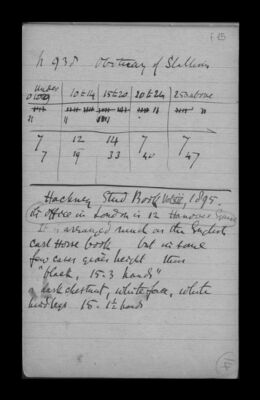 F 15
Obituary of Stallions
under
10 to 14 | 15 to 20 | 20 to 24 | 25 & above
7 12 14 7 7
7 19 33 40 47
Hackney Stud Book 1895.
office in London is 12 Hanover Square
It is arranged much as the English
Cart Horse book but in some
few cases gives height thus
"black, 15-3 hands"
dark chestnut, white face, white
hind legs 15-1½ hands